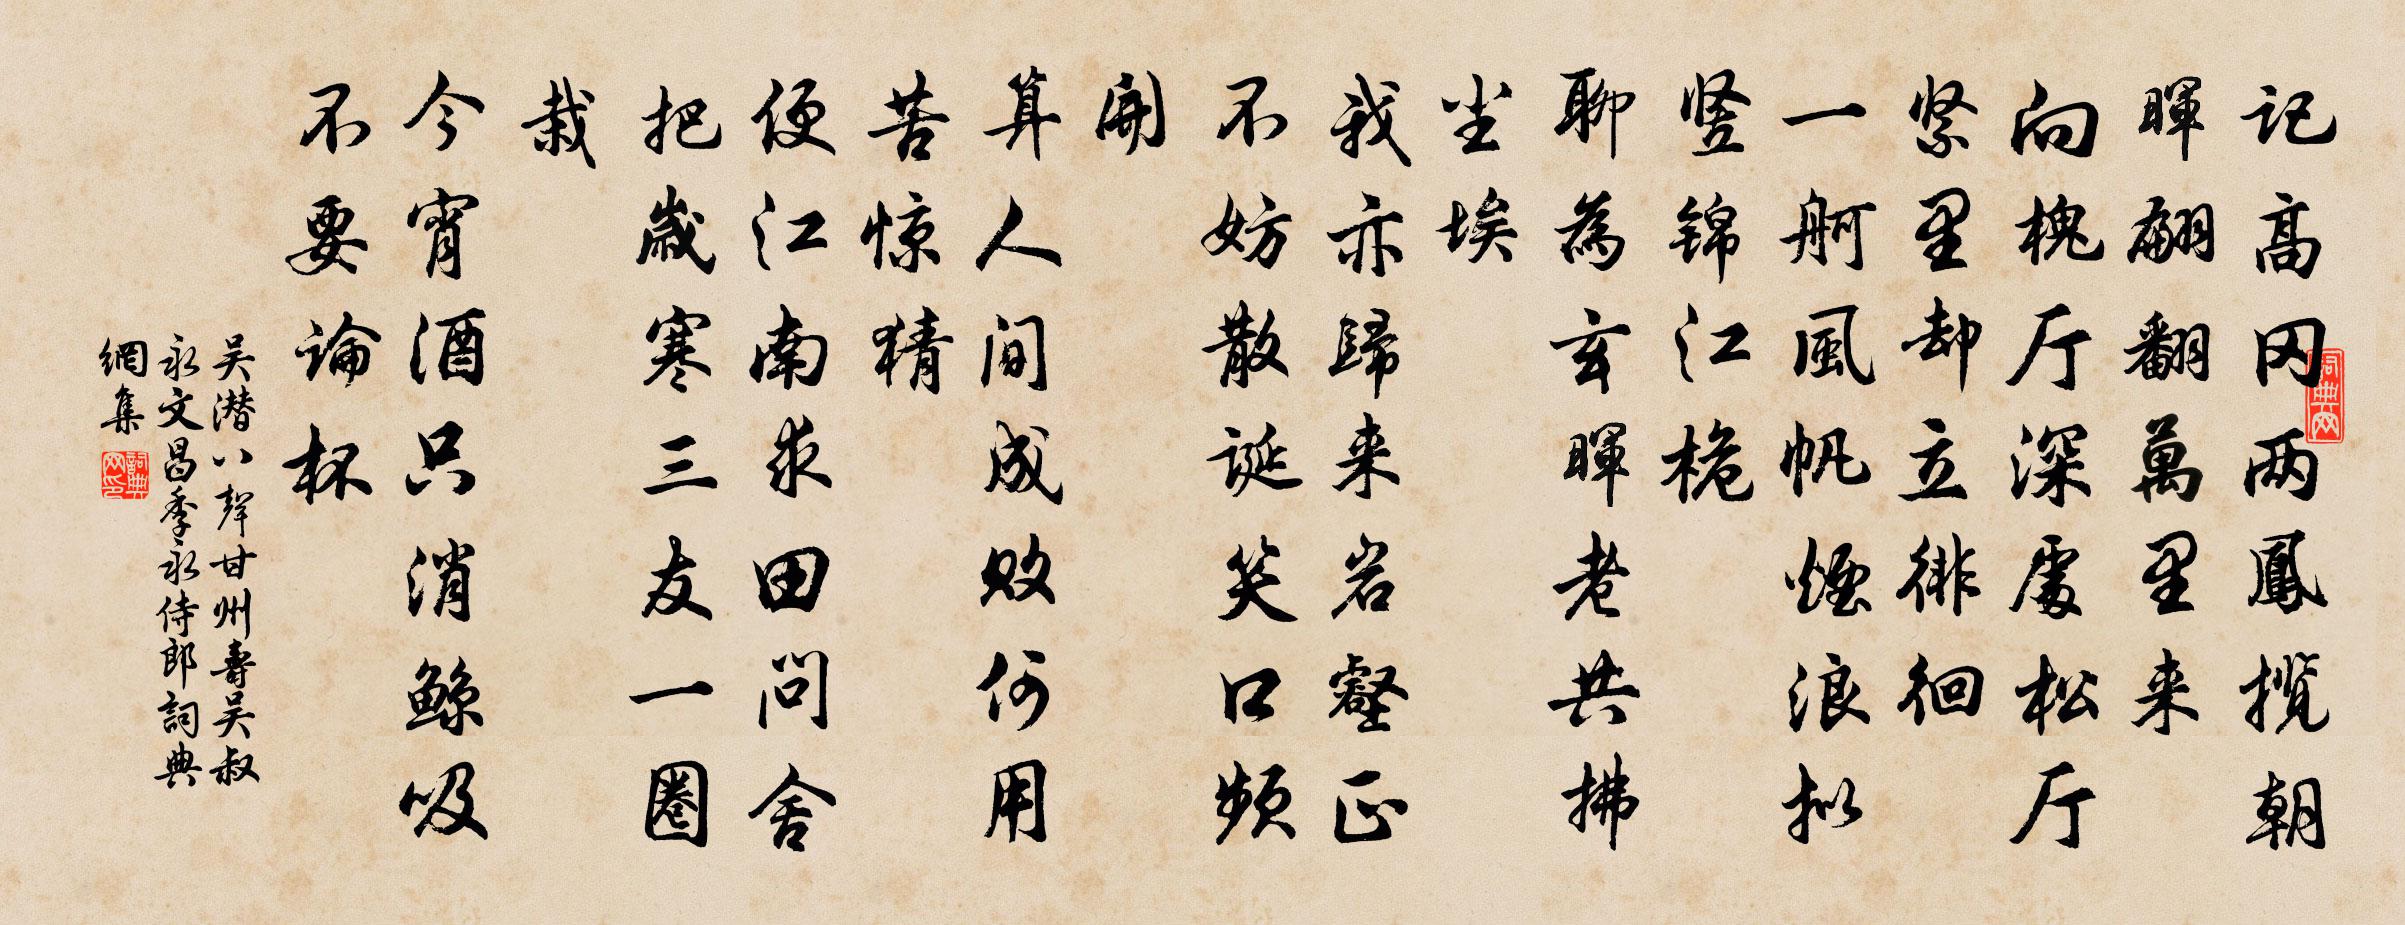 记高冈两鳳揽朝
暉翩翻萬里来
向槐厅深處松厅
紧里却立徘徊
一舸風帆煙浪拟
竖锦江桅
聊為玄暉老共拂
尘埃
我亦歸来岩壑正
不妨散诞笑口频
開
算人间成败何用
苦惊猜
便江南求田问舍
把歲寒三友一圈
栽
今宵酒只消鲸吸
不要論杯
吴潜八聲甘州壽吴叔
永文昌季永侍郎詞典
網集